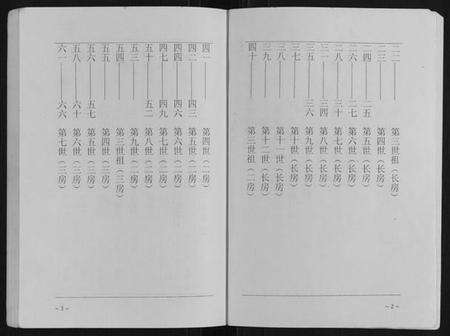 二二————第三世祖（长房）
二三————第四世（长房）
二四——二五 第五世（长房）
二六——二七 第六世（长房）
二八——三十 第七世（长房）
三一——三四 第八世（长房）
三五——三六 第九世（长房）
三七————第十世（长房）
三八————第十一世（长房）
三九————第十二世（长房）
四十————第三世祖（二房）
~2~
四一————第四世（二房）
四二——四三 第五世（二房）
四四——四六 第六世（二房）
四七——四九 第七世（二房）
五十——五二 第八世（二房）
五三————第九世（二房）
五四————第三世祖（三房）
五五————第四世（三房）
五六——五七 第五世（三房）
五八——六十 第六世（三房）
六一——六六 第七世（三房）
~3~